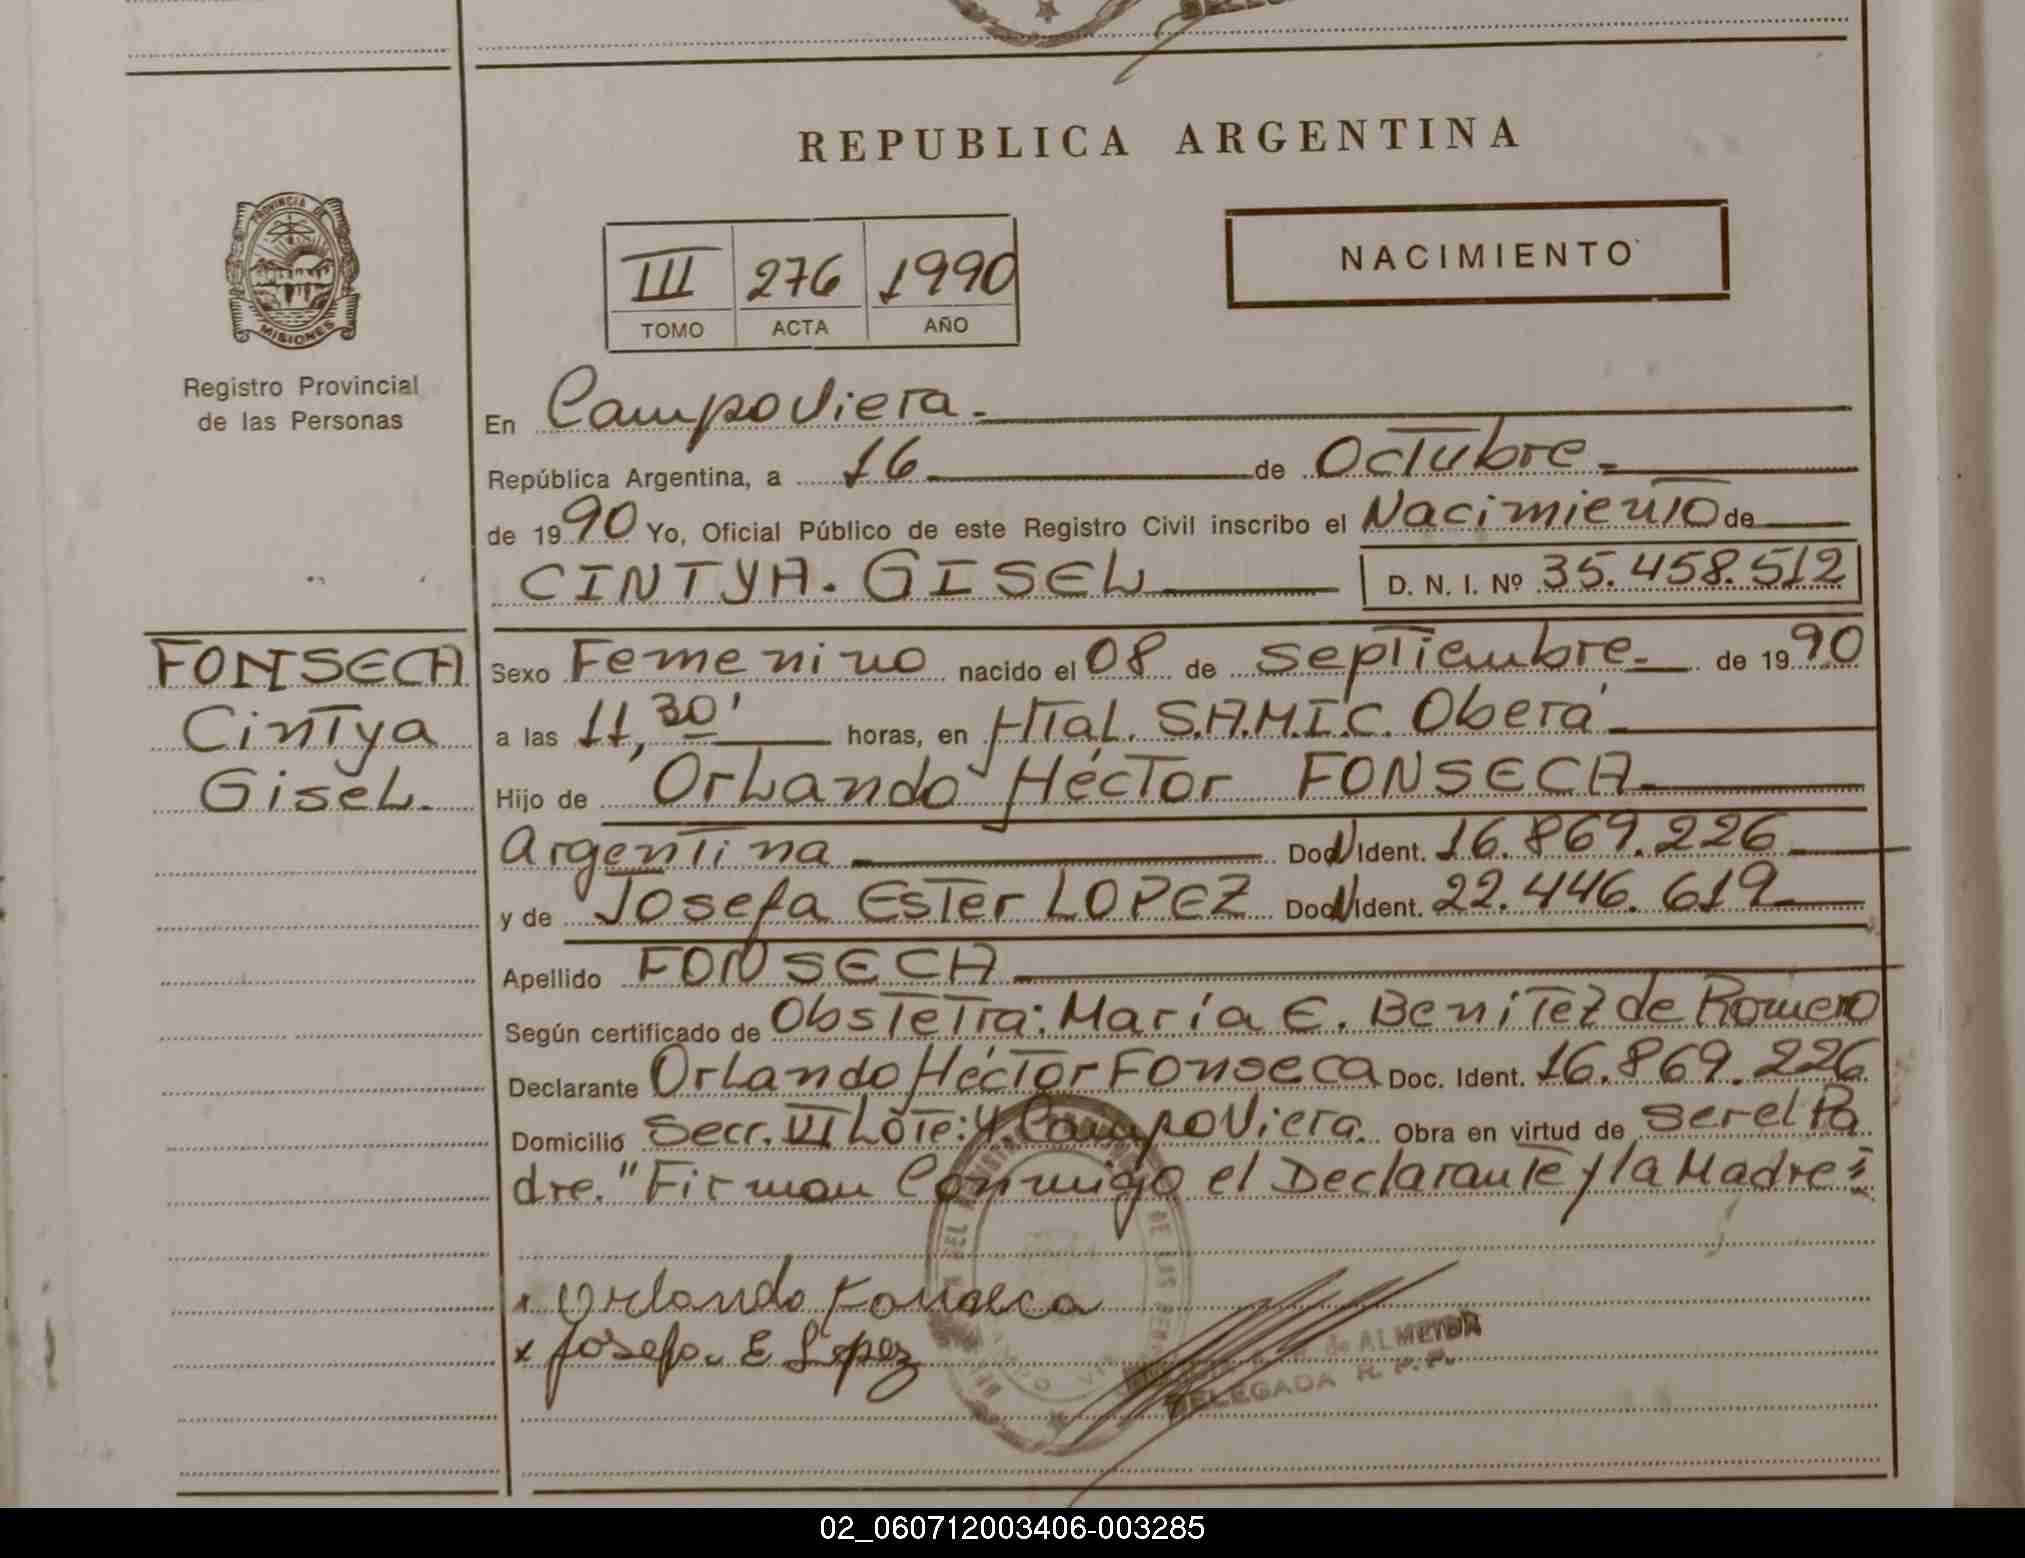 REPUBLICA ARGENTINA
PROVINCIA DE
MISIONES
Registro Provincial
de las Personas
III 276 1990
TOMO ACTA AÑO
NACIMIENTO
En Campo Viera.
República Argentina, a 16 de Octubre.
de 1990 Yo, Oficial Público de este Registro Civil inscribo el Nacimiento de
CINTYA. GISEL D. N. I. Nº 35.458.512
FONSECA
Cintya
Gisel.
Sexo Femenino nacido el 08 de septiembre. de 1990
a las 11,30' horas, en Htal. S.A.M.I.C. Oberá
Hijo de Orlando Héctor FONSECA
Argentina Doc. Ident. 16.869.226
y de Josefa Ester LOPEZ Doc. Ident. 22.446.619
Apellido FONSECA
Según certificado de Obstetra: María E. Benitez de Romero
Declarante Orlando Héctor Fonseca Doc. Ident. 16.869.226
Domicilio Secc. VI Lote: 4. Campo Viera. Obra en virtud de ser el Pa
dre. "Firman Conmigo el Declarante y la Madre"
x Orlando Fonseca
x Josefa E Lopez
de ALMEIDA
DELEGADA R. P. P.
02_060712003406-003285